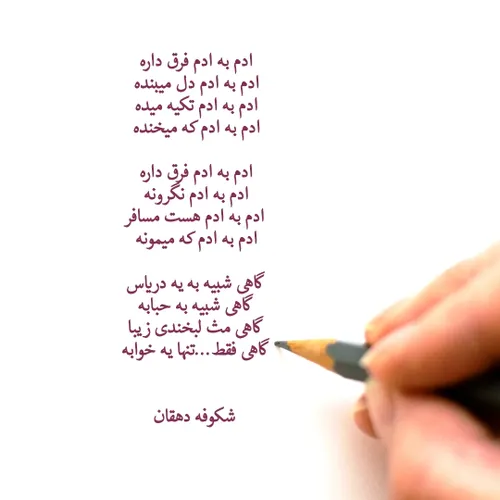 ادم به ادم فرق داره
ادم به ادم دل میبنده
ادم به ادم تکیه میده
ادم به ادم که میخنده
ادم به ادم فرق داره
ادم به ادم نگرونه
ادم به ادم هست مسافر
ادم به ادم که میمونه
گاهی شبیه به یه دریاس
گاهی شبیه به حبابه
گاهی مث لبخندی زیبا
گاهی فقط...تنها یه خوابه
شکوفه دهقان